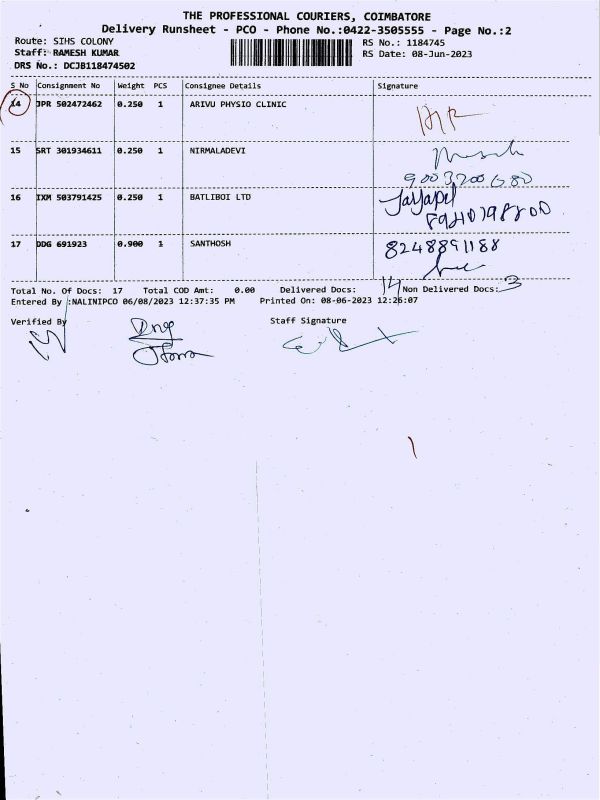 THE PROFESSIONAL COURIERS, COIMBATORE
Delivery Runsheet - PCO - Phone No.:0422-3505555 - Page No.:2
Route: SIHS COLONY
RS No.: 1184745
Staff: RAMESH KUMAR
RS Date: 08-Jun-2023
DRS No.: DCJB118474502
S No Consignment No Weight PCS Consignee Details Signature
14 JPR 502472462 0.250 1 ARIVU PHYSIO CLINIC
15 SRT 301934611 0.250 1 NIRMALADEVI
9003200680
16 IXM 503791425 0.250 1 BATLIBOI LTD
17 DDG 691923 0.900 1 SANTHOSH 8248891188
Total No. Of Docs: 17 Total COD Amt: 0.00 Delivered Docs: 14 Non Delivered Docs: 3
Entered By :NALINIPCO 06/08/2023 12:37:35 PM Printed On: 08-06-2023 12:26:07
Verified By Staff Signature